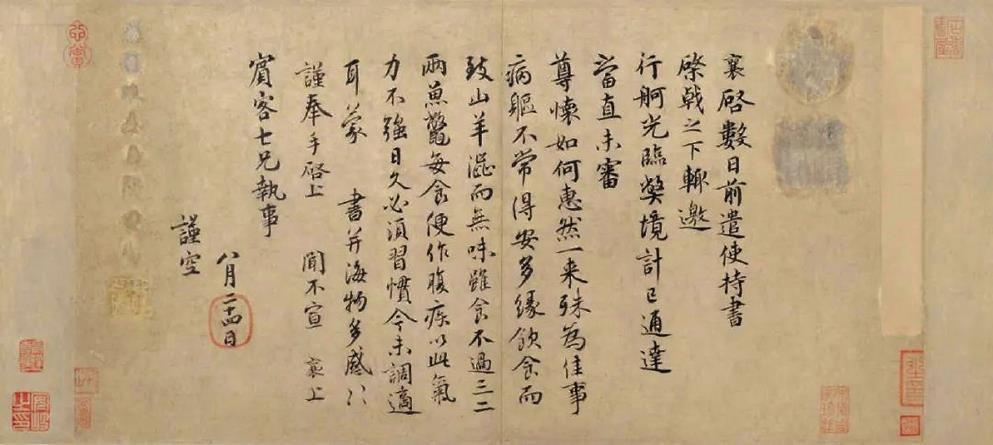 襄啓數日前遣使持書
棨戟之下輙邀
行舸光臨弊境計已通達
當直未審
尊懷如何惠然一来殊為佳事
病軀不常得安多緣飲食而
致山羊澁而無味雖食不過三二
兩魚鼈每食便作腹疾以此氣
力不強日久必須習慣今未調適
耳蒙 書并海物多感〻
謹奉手啓上 聞不宣 襄上
賓客七兄執事
八月二十四日
謹空